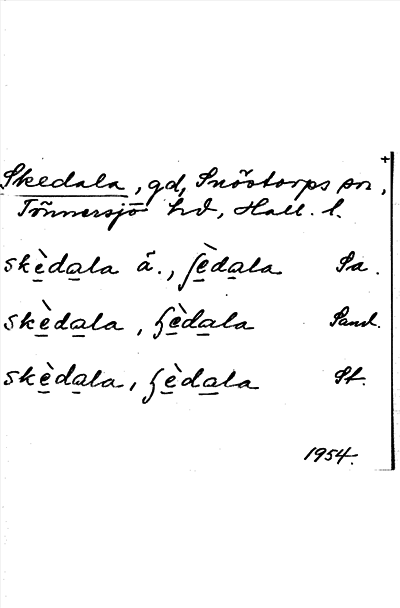 +
Skedala, gd, Snöstorps sn,
Tönnersjö hd, Hall. l.
skè̱da̱la ä., ʃè̱da̱la Sa.
skè̱da̱la, ʒè̱da̱la Sand.
skè̱da̱la, ʒè̱da̱la St.
1954.